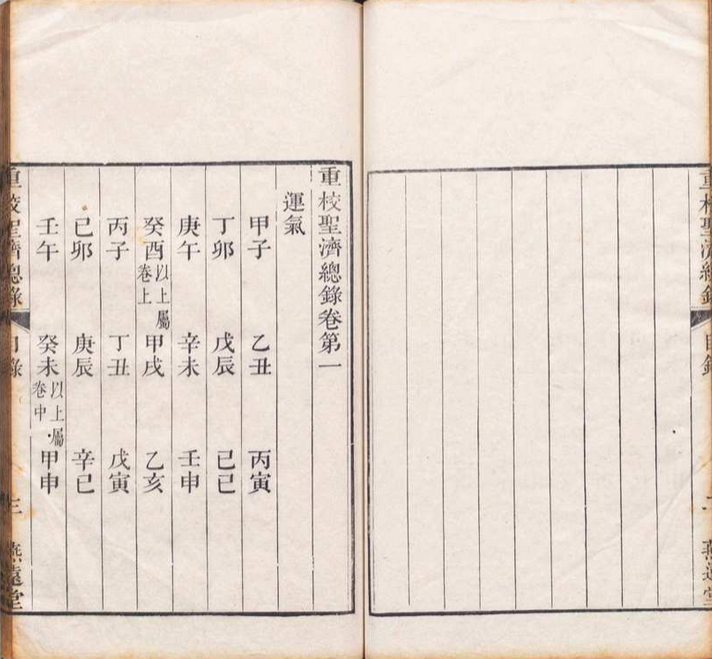 重校聖濟總錄 目錄 二 燕遠堂
重校聖濟總錄卷第一
運氣
甲子 乙丑 丙寅
丁卯 戊辰 己巳
庚午 辛未 壬申
癸酉以上屬卷上 甲戌 乙亥
丙子 丁丑 戊寅
己卯 庚辰 辛巳
壬午 癸未以上屬卷中 甲申
重校聖濟總錄 目錄 三 燕遠堂